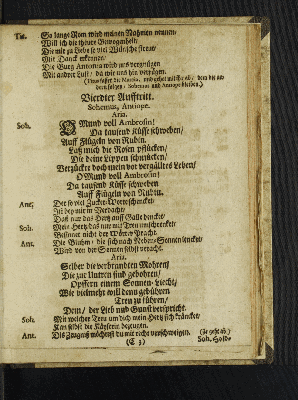 Tit. So lange Rom wird meinen Nahmen nennen/
Will ich die theure Gewogenheit/
Die mir zu Liebe so viel Wünsche streut/
Mit Danck erkennen/
Die Burg Antonia wird uns vergnügen
Mit andrer Lust/ da wir uns hin verfügen.
Vierdter Aufftritt.
Sohemus, Antiope.
Aria.
Soh. O Mund voll Ambrosin!
Da tausend Küsse schweben/
Auff Flügen von Rubin.
Laß mich die Rosen pflücken/
Die deine Lippen schmücken/
Verzücke doch mein vor vergälltes Leben/
O Mund voll Ambrosin!
Da tausend Küsse schweben
Auff Flügen von Rubin.
Ant. Der so viel Zucker-Worte schencket/
Ist bey mir in Verdacht/
Daß nur das Hertz auff Galle dencket/
Soh. Mein Hertz das nur auf Treu
Besinnet nicht der Wörter Pracht.
Ant. Die Bluhm/ die sich nach der Sonnen lencket/
Wird von der Sonnen selbst veracht.
Aria.
Selber die verbrandten Mohren/
Die zur Untreu sind gebohren/
Opffern einem Sonnen-Liecht/
Wie vielmehr will denn gebühren
Treu zu führen/
Dem/ der Lieb und Gunst verspricht.
Soh. Mit welcher Treu um dich mein Hertz sich kräncket/
Kan selbst die Käyserin bezeugen.
Ant. Diß Zeugniß möchtest du mit recht verschweigen. (Sie geht ab)
(C 3) Soh. Hold-